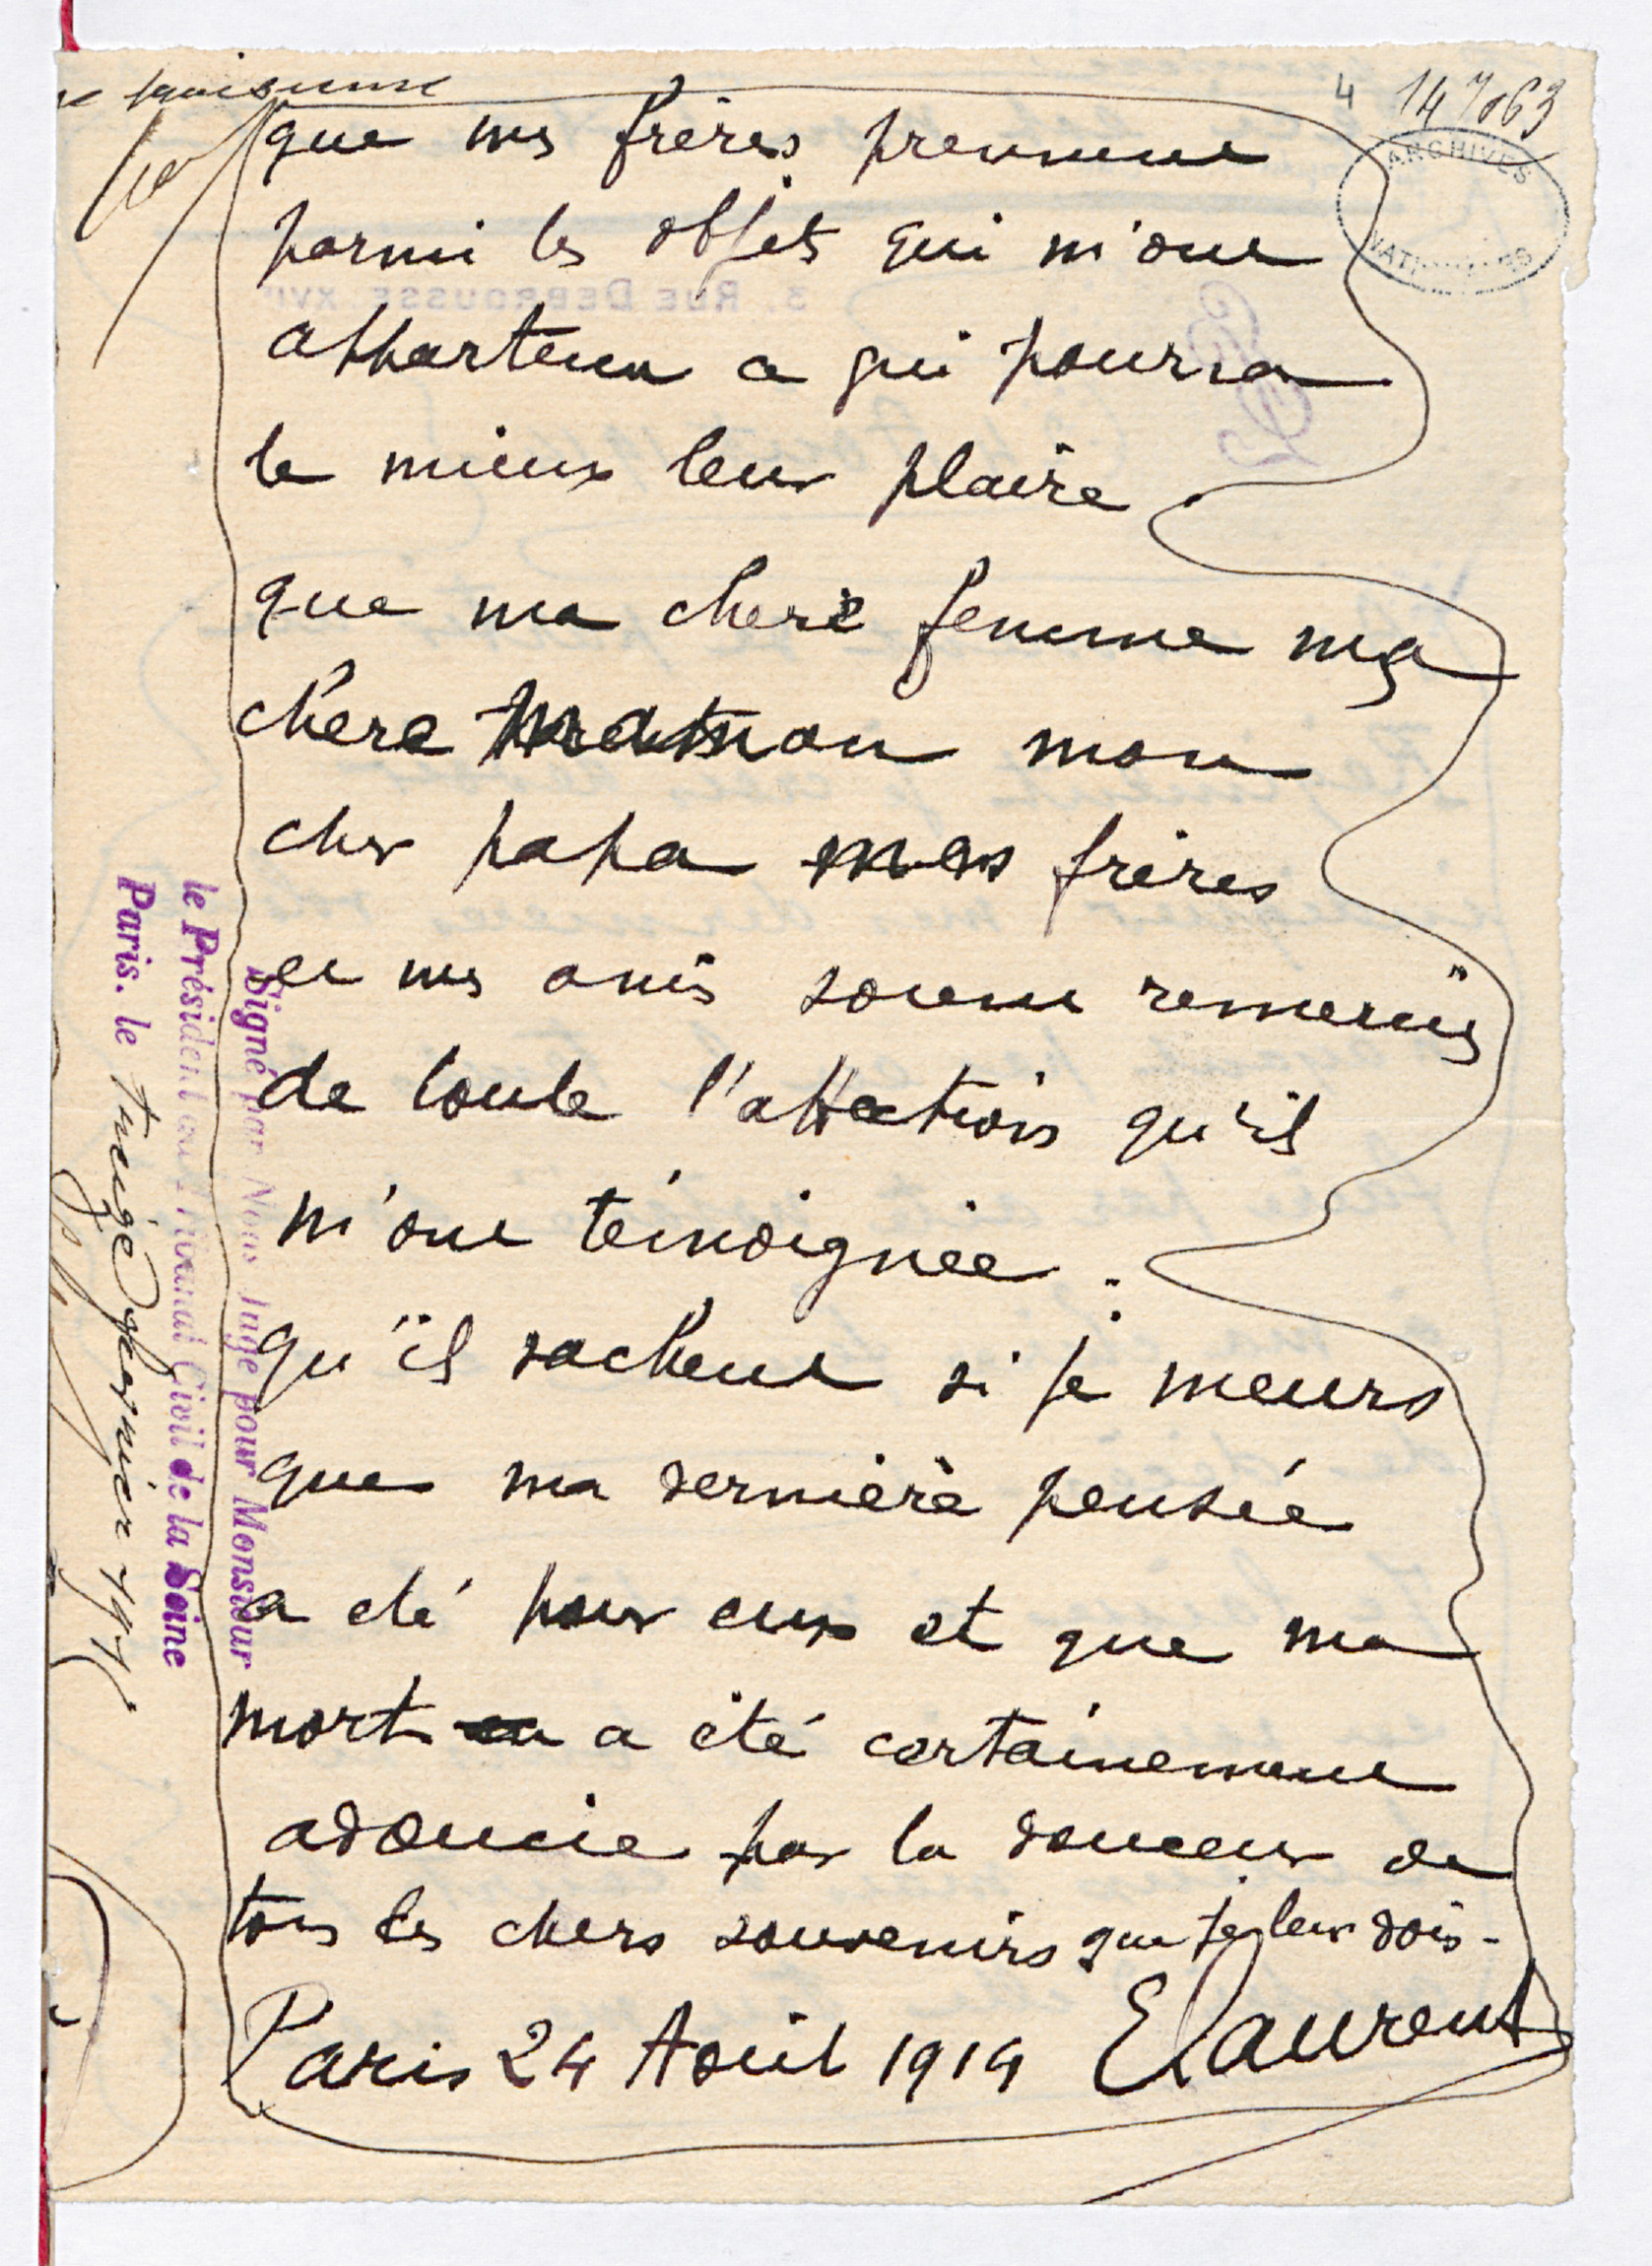 4 147063
ARCHIVES
NATIONALES
que mes frères prennent
parmi les objets qui m'ont
appartenu a qui pourra
le mieux leur plaire
que ma chere femme ma
chère maman mon
cher papa mes frères
et mes amis soient remerciés
de toute l'affection qu'il
m'ont témoignée.
qu'il sachent si je meurs
que ma dernière pensée
a été pour eux et que ma
mort a été certainement
adoucie par la douceur de
tous les chers souvenirs que je leur dois -
Paris 24 Août 1914 ELaurent
Signé par Nous Juge pour Monsieur
le Président du Tribunal Civil de la Seine
Paris. le
3. RUE DEBROUSSE. XVIe